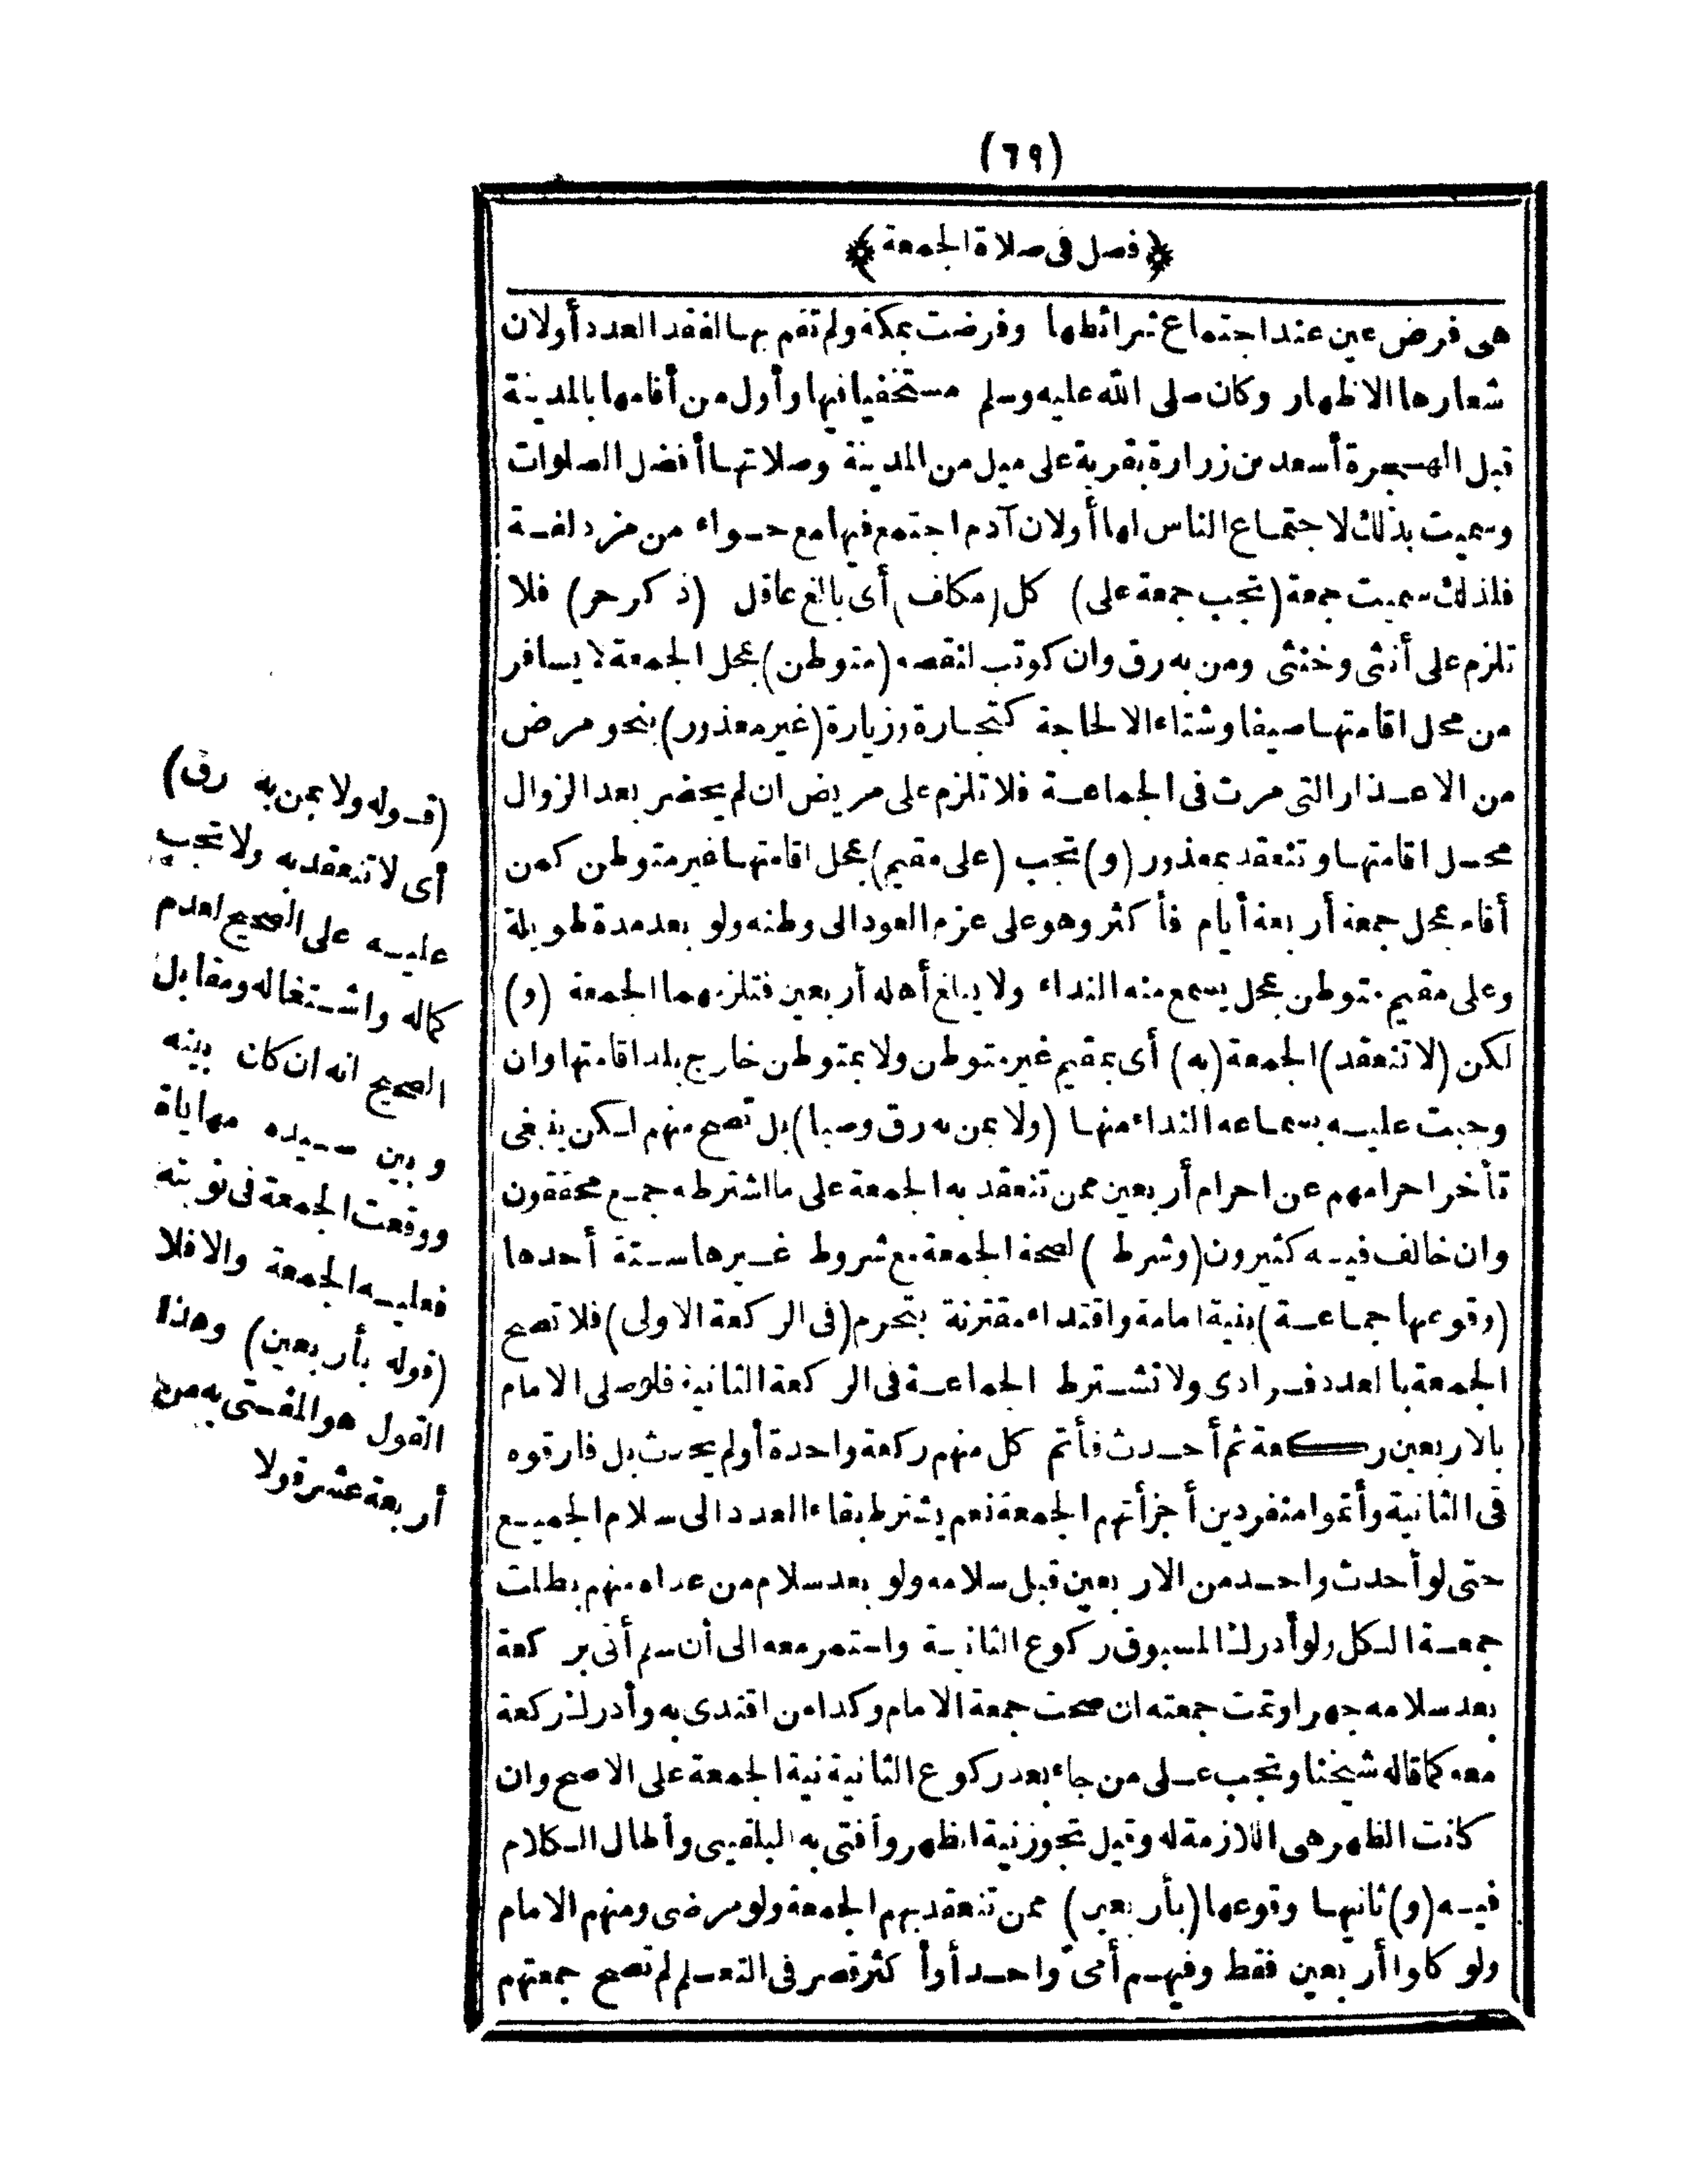 (٦٩)
﴿فصل فى صلاة الجمعة﴾
هى فرض عين عند اجتماع شرائطها وفرضت بمكة ولم تقم بها لفقد العدد أولان
شعارها الاظهار وكان صلى الله عليه وسلم مستخفيا فيها وأول من أقامها بالمدينة
قبل الهجرة أسعد بن زرارة بقرية على ميل من المدينة وصلاتها أفضل الصلوات
وسميت بذلك لاجتماع الناس لها أولان آدم اجتمع فيها مع حواء من مزدلفة
فلذلك سميت جمعة (تجب جمعة على) كل (مكلف) أى بالغ عاقل (ذكر حر) فلا
تلزم على أنثى وخنثى ومن به رق وان كوتب لنقصه (متوطن) بمحل الجمعة لا يسافر
من محل اقامتها صيفا وشتاء الا لحاجة كتجارة وزيارة (غير معذور) بنحو مرض
من الاعذار التى مرت فى الجماعة فلا تلزم على مريض ان لم يحضر بعد الزوال
محل اقامتها وتنعقد بمعذور (و) تجب (على مقيم) بمحل اقامتها غير متوطن كمن
أقام بمحل جمعة أربعة أيام فأكثر وهو على عزم العود الى وطنه ولو بعد مدة طويلة
وعلى مقيم متوطن بمحل يسمع منه النداء ولا يبلغ أهله أربعين فتلزمهما الجمعة (و)
لكن (لا تنعقد) الجمعة (به) أى بمقيم غير متوطن ولا بمتوطن خارج بلد اقامتها وان
وجبت عليه بسماعه النداء منها (ولا بمن به رق وصبا) بل تصح منهم لكن ينبغى
تأخر احرامهم عن احرام أربعين ممن تنعقد به الجمعة على ما اشترطه جمع محققون
وان خالف فيه كثيرون (وشرط) لصحة الجمعة مع شروط غيرها ستة أحدها
(وقوعها جماعة) بنية امامة واقتداء مقترنة بتحرم (فى الركعة الاولى) فلا تصح
الجمعة بالعدد فرادى ولا تشترط الجماعة فى الركعة الثانية فلو صلى الامام
بالاربعين ركعة ثم أحدث فأتم كل منهم ركعة واحدة أولم يحدث بل فارقوه
فى الثانية وأتموا منفردين أجزأتهم الجمعة نعم يشترط بقاء العدد الى سلام الجميع
حتى لو أحدث واحد من الاربعين قبل سلامه ولو بعد سلام من عداه منهم بطلت
جمعة الكل ولو أدرك المسبوق ركوع الثانية واستمر معه الى أن سلم أتى بركعة
بعد سلامه جهرا وتمت جمعته ان صحت جمعة الامام وكذا من اقتدى به وأدرك ركعة
معه كما قاله شيخنا وتجب على من جاء بعد ركوع الثانية نية الجمعة على الاصح وان
كانت الظهر هى اللازمة له وقيل تجوز نية الظهر وأفتى به البلقينى وأطال الكلام
فيه (و) ثانيها وقوعها (بأربعين) ممن تنعقد بهم الجمعة ولو مرضى ومنهم الامام
ولو كانوا أربعين فقط وفيهم أمىّ واحد أو أكثر قصر فى التعلم لم تصح جمعتهم
(قوله ولا بمن به رق)
أى لا تنعقد به ولا تجب
عليه على الصحيح لعدم
كماله واشتغاله ومقابل
الصحيح انه ان كان بينه
وبين سيده مهاياة
ووقعت الجمعة فى نوبته
فعليه الجمعة والا فلا
(قوله بأربعين) وهذا
القول هو المفتى به من
أربعة عشر قولا